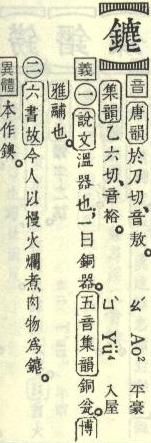 鏕
音 唐韻於刀切、音敖。 ㄠ Ao² 平豪
集韻乙六切、音裕。 ㄩˋ Yü⁴ 入屋
義 ㊀說文溫器也、一曰銅器。五音集韻銅瓮。博
雅鬴也。
㊁六書故今人以慢火爛煮肉物為鏕。
異體 本作鐭。